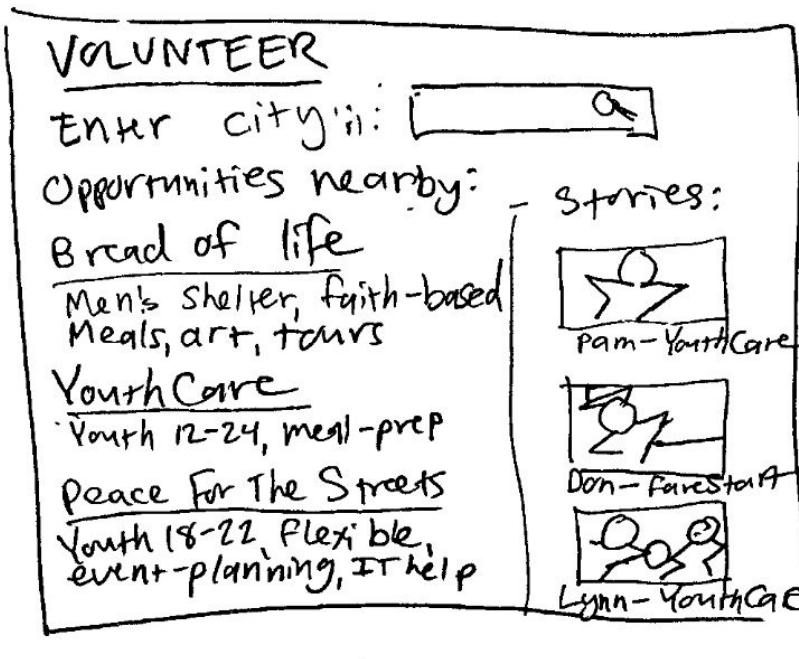 VOLUNTEER
Enter city:
Opportunities nearby:
Bread of life
Men's shelter, faith-based
Meals, art, tours
YouthCare
Youth 12-24, meal-prep
Peace For The Streets
Youth 18-22, flexible,
event-planning, IT help
Stories:
Pam-YouthCare
Don-FareStart
Lynn-YouthCare